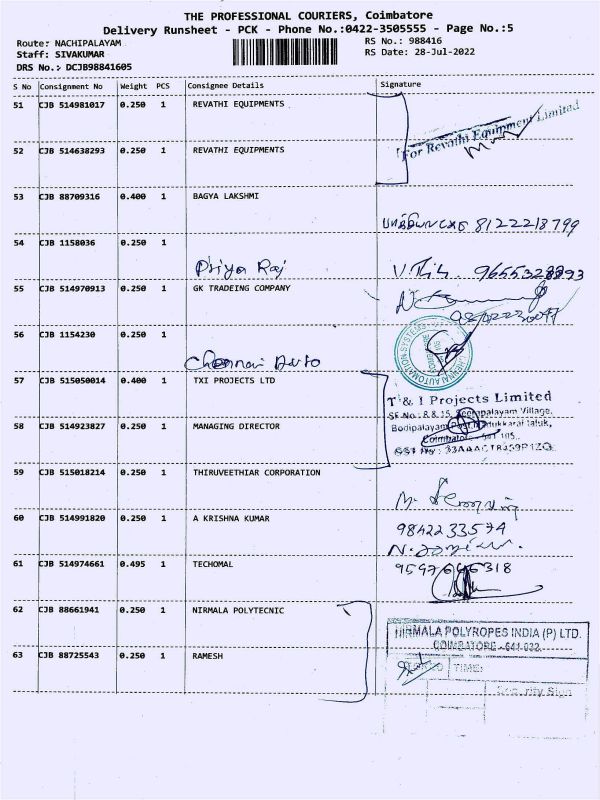 THE PROFESSIONAL COURIERS, Coimbatore
Delivery Runsheet - PCK - Phone No.:0422-3505555 - Page No.:5
Route: NACHIPALAYAM
RS No.: 988416
Staff: SIVAKUMAR
RS Date: 28-Jul-2022
DRS No.: DCJB98841605
S No Consignment No Weight PCS Consignee Details Signature
51 CJB 514981017 0.250 1 REVATHI EQUIPMENTS
For Revathi Equipment Limited
52 CJB 514638293 0.250 1 REVATHI EQUIPMENTS
53 CJB 88709316 0.400 1 BAGYA LAKSHMI
8122218799
54 CJB 1158036 0.250 1
Priya Raj
9655328893
55 CJB 514970913 0.250 1 GK TRADEING COMPANY
56 CJB 1154230 0.250 1
CHENNAI AUTOMATION SYSTEMS
Chennai Auto
57 CJB 515050014 0.400 1 TXI PROJECTS LTD
T & I Projects Limited
SF.No: 8 & 15, Seerapalayam Village,
58 CJB 514923827 0.250 1 MANAGING DIRECTOR
Bodipalayam Post, Madukkarai taluk,
Coimbatore - 641 105.
59 CJB 515018214 0.250 1 THIRUVEETHIAR CORPORATION
60 CJB 514991820 0.250 1 A KRISHNA KUMAR
9842233574
61 CJB 514974661 0.495 1 TECHOMAL
62 CJB 88661941 0.250 1 NIRMALA POLYTECNIC
NIRMALA POLYROPES INDIA (P) LTD.
COIMBATORE - 641 032.
63 CJB 88725543 0.250 1 RAMESH
TIME:
Security Sign